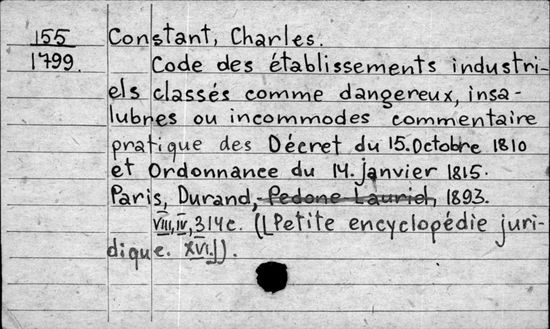 155 Constant, Charles.
1799. Code des établissements industri-
els classés comme dangereux, insa-
lubres ou incommodes commentaire
pratique des Décret du 15. Octobre 1810
et Ordonnance du 14. janvier 1815.
Paris, Durand, Pedone Lauriel, 1893.
VIII, IV, 314c. ([Petite encyclopédie juri-
dique. XVI]).